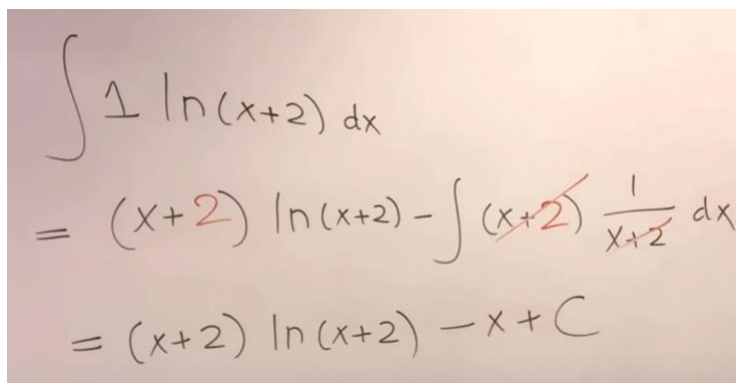 ∫ 1 ln(x+2) dx
= (x+2) ln(x+2) - ∫ (x+2) 1/(x+2) dx
= (x+2) ln(x+2) - x + C